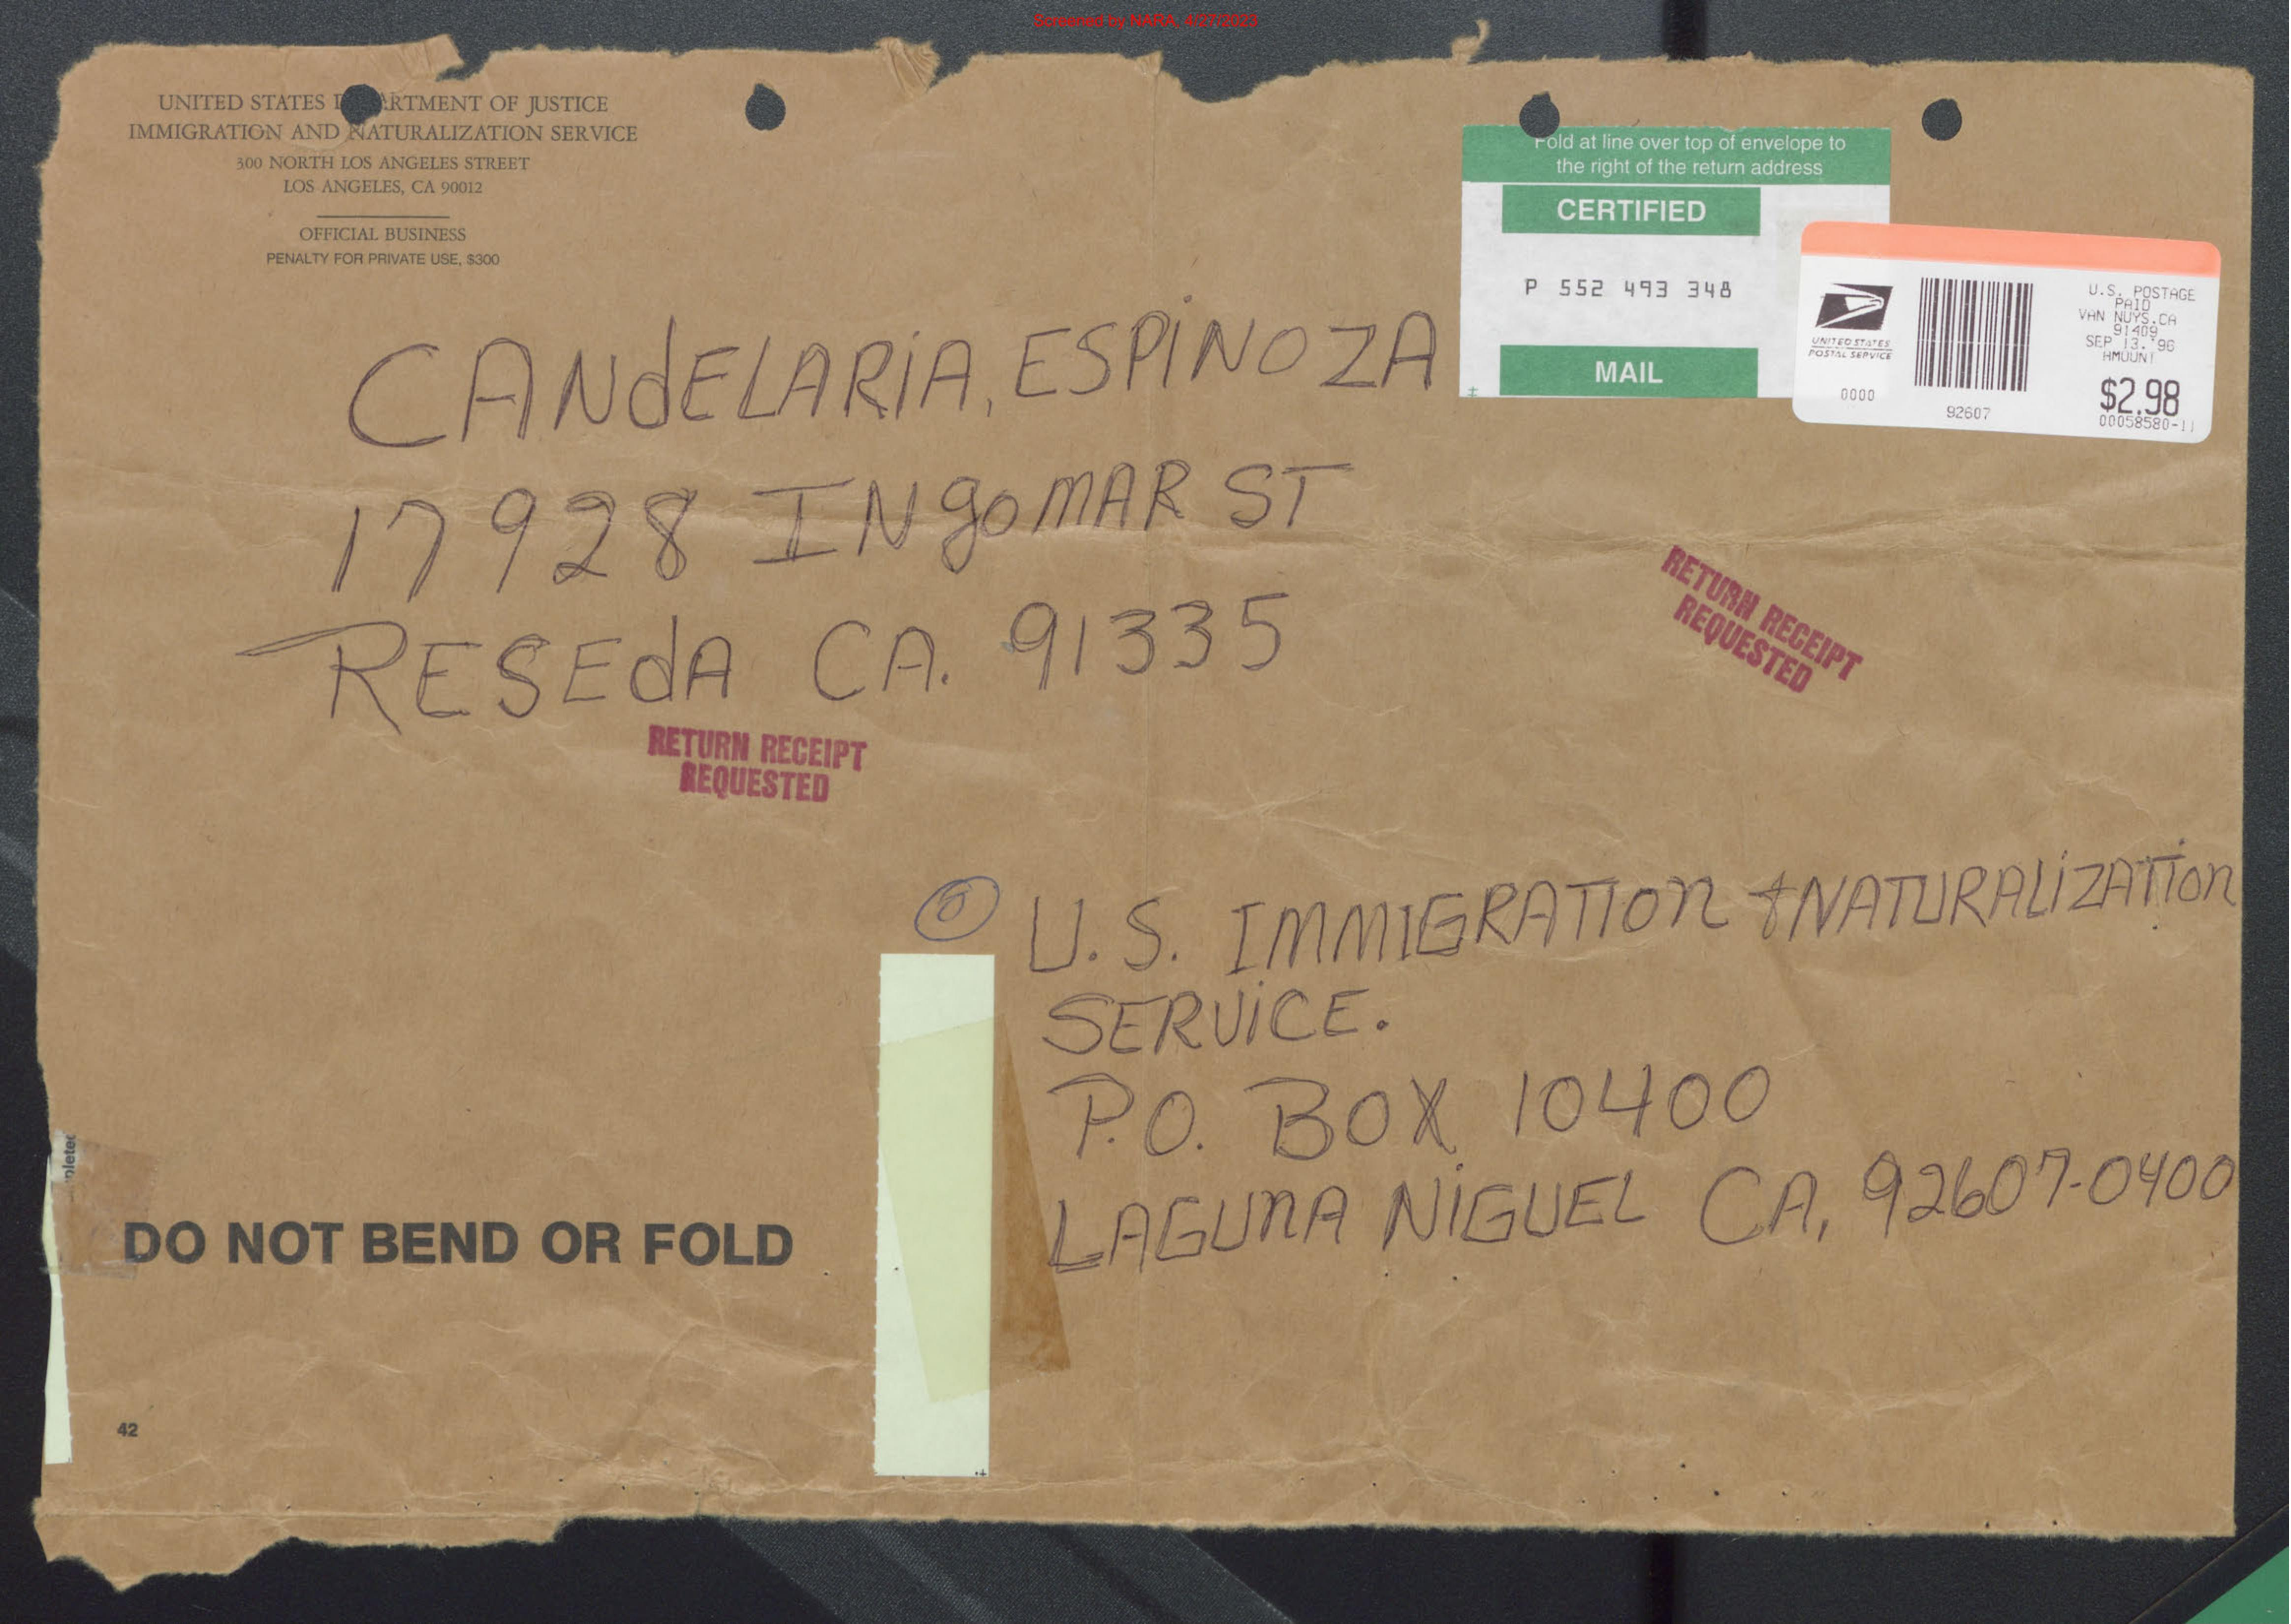 Screened by NARA, 4/27/2023
UNITED STATES DEPARTMENT OF JUSTICE
IMMIGRATION AND NATURALIZATION SERVICE
300 NORTH LOS ANGELES STREET
LOS ANGELES, CA 90012
OFFICIAL BUSINESS
PENALTY FOR PRIVATE USE, $300
Fold at line over top of envelope to
the right of the return address
CERTIFIED
P 552 493 348
MAIL
UNITED STATES
POSTAL SERVICE
0000
92607
U.S. POSTAGE
PAID
VAN NUYS.CA
91409
SEP 13.'96
$2.98
00058580-11
CANdELARiA, ESPiNOZA
17928 INgOMAR ST
RESEdA CA. 91335
RETURN RECEIPT
REQUESTED
RETURN RECEIPT
REQUESTED
U.S. IMMIGRATION + NATURALiZATION
SERViCE.
P.O. BOX 10400
LAGUNA NiGUEL CA, 92607-0400
DO NOT BEND OR FOLD
42